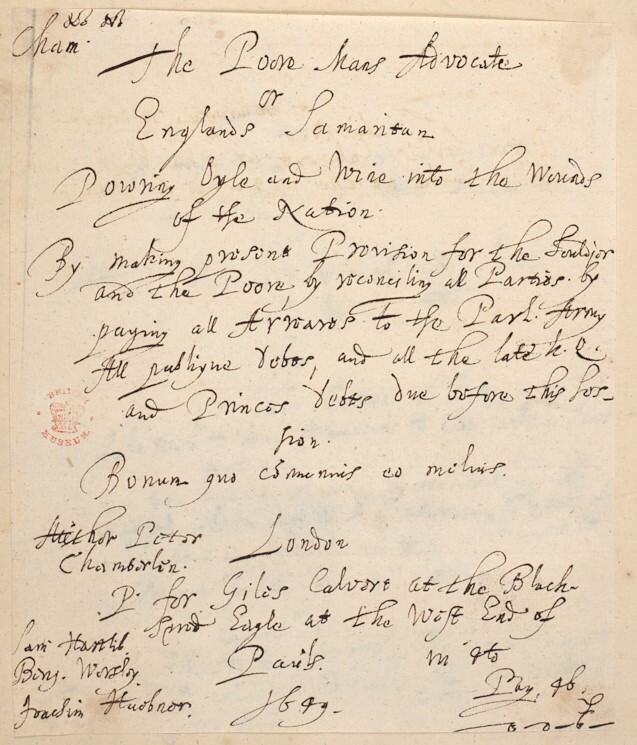 Cham:
The Poore Mans Advocate
or
Englands Samaritan
Powring Oyle and Wine into the Wounds
of the Nation.
By making present Provision for the Souldjor
and the Poore, by reconciling all Parties. by
paying all Arrears to the Parl: Army
All publique debts, and all the late k. Q.
and Princes debts due before this Ses-
sion.
Bonum quo cõmunius eo melius.
BRITISH MUSEUM
Author Peter
Chamberlen.
London
P. for Giles Calvert at the Black-
Spred Eagle at the West End of
Pauls. in 4to
Sam: Hartlib.
Benj. Worsley.
Joachim Huebner.
1649.
Pag. 46.
0-0-6